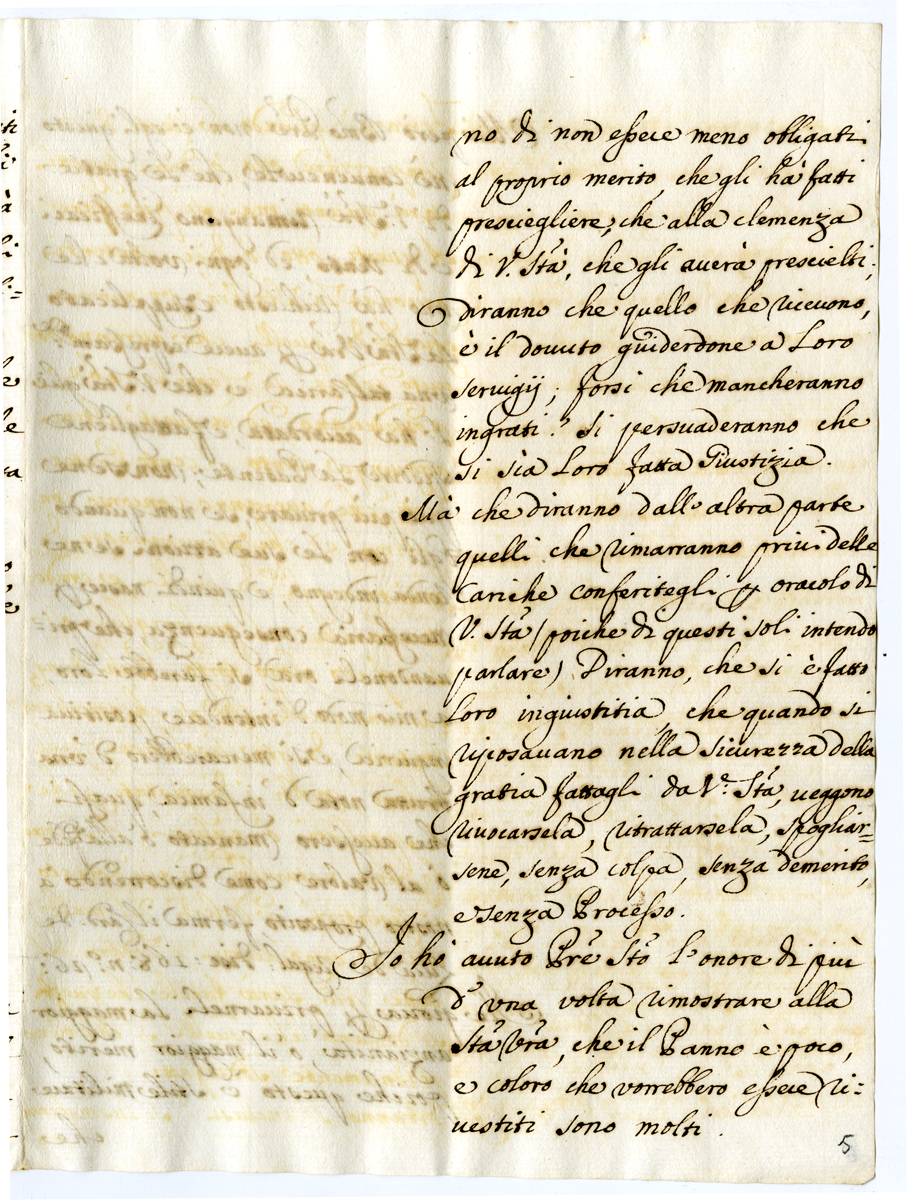 no di non essere meno obligati
al proprio merito, che gli hà fatti
presciegliere, che alla clemenza
di V. Stà, che gli averà prescielti;
diranno che quello che ricevono,
è il dovuto guiderdone a Loro
servigij; forsi che mancheranno
ingrati? Si persuaderanno che
si sia Loro fatta Giustizia.
Mà che diranno dall'altra parte
quelli che rimarranno privi delle
Cariche conferitegli p oracolo di
V. Stà (poiche di questi soli intendo
parlare) Diranno, che si è fatto
Loro ingiustitia, che quando si
riposavano nella sicurezza della
gratia fattagli da V.ª Stà, veggono
rivocarsela, ritrattarsela, spogliar=
sene, senza colpa, senza demerito,
e senza Processo.
Io hò avuto Prē Stō l'onore di più
d'una volta rimostrare alla
Stà Vrā, che il Panno è poco,
e coloro che vorrebbero essere ri=
vestiti sono molti.
5